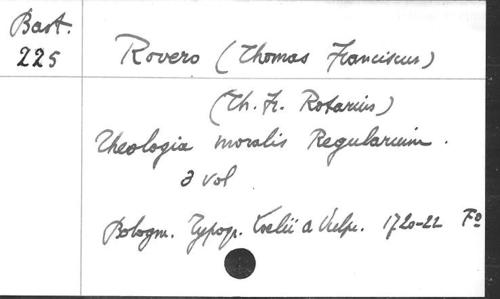 Bast.
225
Rovero (Thomas Franciscus)
(Th. Fr. Rotarius)
Theologia moralis Regularium.
3 vol
Bologn. Typogr. Laelii a Vulpe. 1720-22 Fo